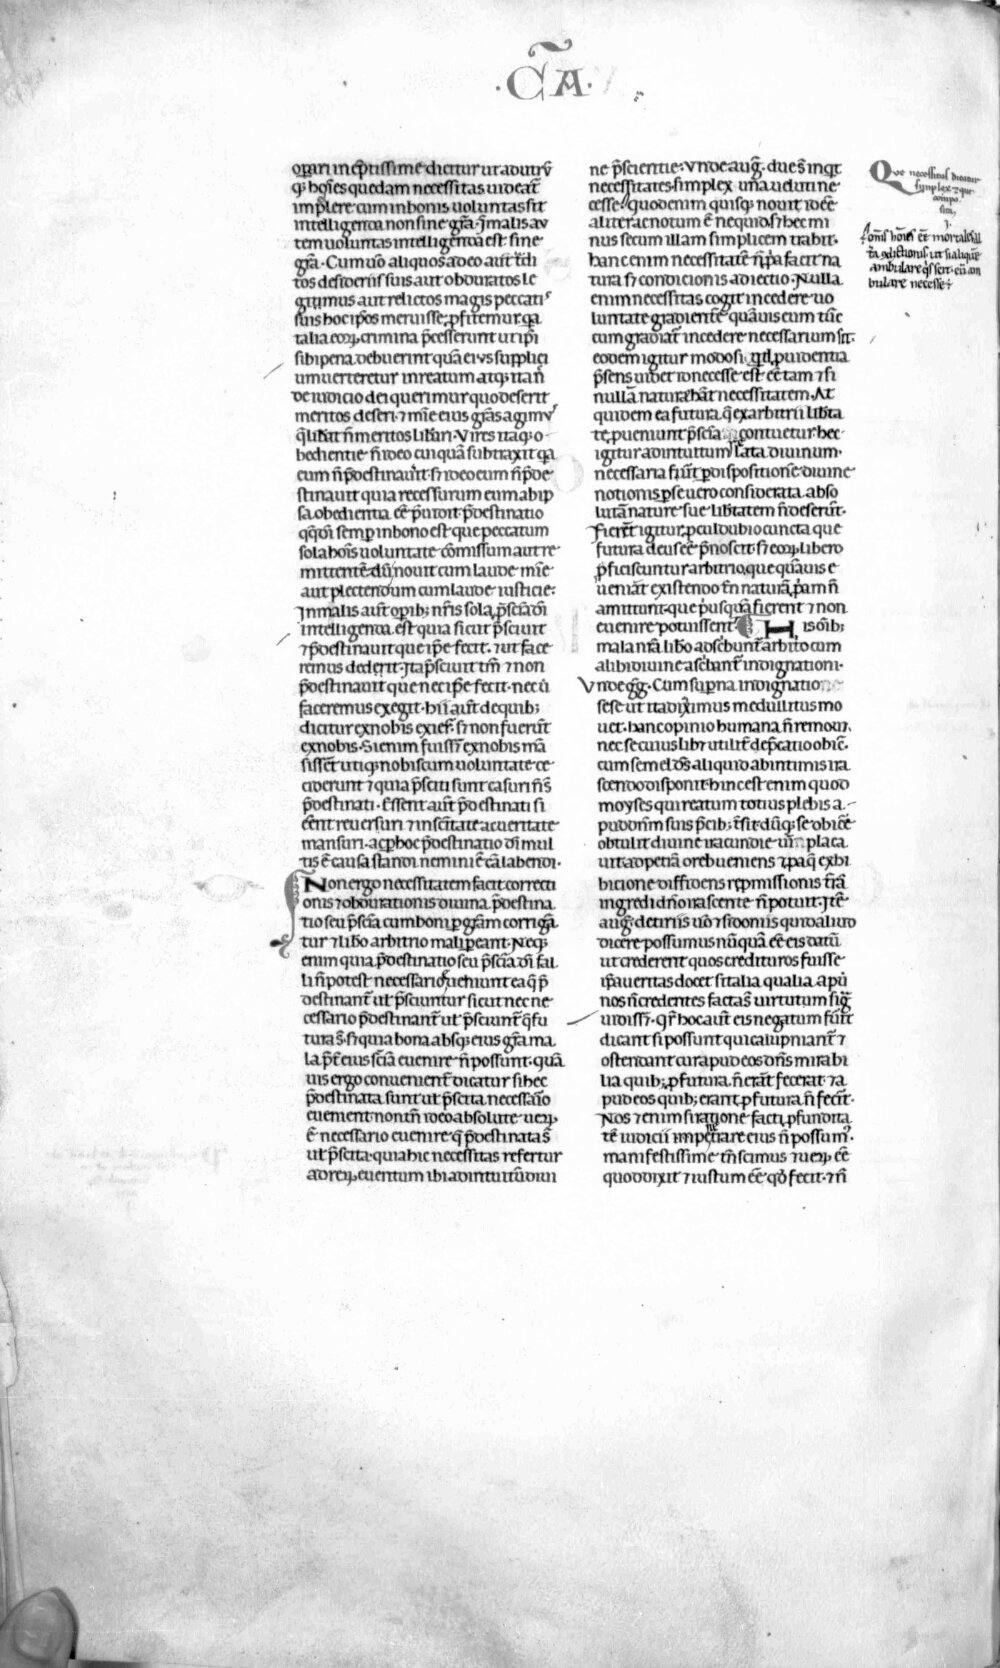 ·C̃A·
op̲ari ineptissime dicitur ut aditr̃u
q; ho͞ies quedam necessitas uideat̃
implere cum in bonis uoluntas sit
intelligenda non sine gr̃a. Jn malis au
tem uoluntas intelligenda est sine
gr̃a. Cum u͞o aliquos adeo aut t̃di
tos desideriis suis aut obduratos le
gitimus aut relictos magis peccati⁹
suis hoc ip̃os meruisse ꝓfitemur q̃a
talia eoꝝ crimina p̃cesserunt ut ip̃i
sibi pena debuerint quã eius supplici
um uerteretur in reatum atq; ita ñ
de iudicio dei querimur quo deserit
meritos deseri. ⁊ mĩe eius gr̃as agim⁹
q̃ lib̃at ñ meritos lib̃ari. Vires itaq; o
bedientie ñ ideo cuiquã subtraxit q̃a
eum ñ p̃destinauit. s; ideo eum ñ p̃de
stinauit quia recessurum eum ab ip
sa obedientia eẽ p̃uidit. p̃destinatio
q̃q̃ di semp̲ in bono est que peccatum
sola ho͞is uoluntate cõmissum aut re
mittente dũ nouit cum laude mĩe
aut plectendum cum laude iusticie.
Jn malis aut̃ op̲ib; nr̃is sola p̃scĩa di͞
intelligenda est quia sicut p̃sciuit
⁊ p̃destinauit que ip̃e fecit. ⁊ ut face
remus dedit. Jta p̃sciuit tm̃ ⁊ non
p̃destinauit que nec ip̃e fecit. nec ũ
faceremus exegit. hii aut̃ de quib;
dicitur ex nobis exier̃. s; non fuer̃ut
ex nobis. Si enim fuiss; ex nobis mã
sissẽt utiq; nobiscum uoluntate ce
ciderunt ⁊ quia p̃sciti sunt casuri ñ s̃
p̃destinati. Essent aut̃ p̃destinati si
eẽnt reuersuri ⁊ in sc̃itate ac ueritate
mansuri. ac p̲ hoc p̃destinatio di͞ mul
tis ẽ causa standi nemini ẽ cã labendi.
Non ergo necessitatem facit correcti
onis ⁊ obdurationis diuina p̃destina
tio seu p̃scĩa cum boni p̲ gr̃am corrigã
tur ⁊ lib̃o arbitrio mali p̲eant. Neq;
enim quia p̃destinatio seu p̃scĩa di͞ fal
li ñ potest necessario eueniunt ea q̃ p̃
destinant̃ ut p̃sciuntur sicut nec ne
cessario p̃destinant̃ ut p̃sciunt̃ q̃ fu
tura s̃. s; quia bona absq; eius gr̃a ma
la p̃t̃ eius scĩa euenire ñ possunt. quã
uis ergo conuenient̃ dicatur si hec
p̃destinata sunt ut p̃scita necessãio
euenient. non tñ ideo absolute ueꝝ
ẽ necessario euenire q̃ p̃destinata s̃
ut p̃scita. quia hic necessitas refertur
ad reꝝ euentum ibi ad intuitũ diui
ne p̃scientie. Vnde aug̃. due s̃ inq̃t
necessitates. simplex una uidi ut ne
cesse. quod enim quisq; nouit id eẽ
aliter ac notum ẽ nequid. s; hec mi
nus secum illam simplicem trahit.
hanc enim necessitatẽ ñ p̃p̃a facit na
tura s; condicionis adiectio. Nulla
enim necessitas cogit incedere uo
luntate gradientẽ quãuis cum tũc
cum gradiat̃ incedere necessarium sit.
eodem igitur modo si q̃d ꝓuidentia
p̃sens uidet id necesse est eẽ tam ⁊ si
nullã natura hãt necessitatem. At
quidem ea futura q̃ ex arbitrii lib̃ta
te ꝓueniunt p̃scĩa contuetur hec
igitur ad intuitum r̃lata diuinum
necessaria fiũt p̲ dispositionẽ diuine
notionis p̲ se uero considerata abso
lutã nature sue lib̃tatem ñ deserũt.
Fierẽt igitur ꝓculdubio cuncta que
futura deus eẽ p̃noscit. s; eoꝝ libero
ꝓficiscuntur arbitrio que quãuis e
ueniãt existendo tñ naturã ꝓp̃am ñ
amittunt. que p̃usquã fierent ⁊ non
euenire potuissent. His oĩb;
mala nr̃a lib̃o adscbunt̃ arbito cum
alibi diuine ascbant̃ indignationi.
Vnde gg̃. Cum sup̲na indignatio
sese ut ita dix̃imus medullitus mo
uet. hanc opinio humana ñ remou.
nec se cuius libꝫ utilit̃ dep̃catio obiẽ.
cum semel ds̃ aliquid ab intimis ira
scendo disponit. hinc est enim quod
moyses qui reatum totius plebis a
pud dñm suis p̃cib; t̃sit. dũq; se obice
obtulit diuine iracundie uĩ placa
uit ad petrã oreb ueniens ⁊ p aq̃ exhi
bicione diffidens rep̲missionis tr̃ã
ingredi dño irascente ñ potuit. Jtẽ
aug̃. de tiriis u͞o ⁊ sidoniis quid aliud
dicere possumus nũquã eẽ eis datũ
ut crederent quos credituros fuisse
ip̃a ueritas docet si talia qualia apũ
nos ñ credentes facta s̃ uirtutum sig̃
uidiss;. q̃r hoc aut̃ eis negatum fũit
dicant si possunt qui calũpniant̃ ⁊
ostendant cur apud eos dñs mirabi
lia quib; ꝓfutura ñ erãt fecerat. ⁊ a
pud eos quib; erant ꝓfutura ñ fecit.
Nos ⁊ enim si ratione facti ꝓfundita
tẽ iudicii impetrare eius ñ possum⁹.
manifestissime tñ scimus ⁊ ueꝝ eẽ
quod dixit ⁊ iustum eẽ q̃d fecit. ⁊ ñ
Que necessitas dicatur
symplex ⁊ que
compo
sita
oĩs hõies eẽ mortales. al
t̃a ↄdictionis. ut si aliquẽ
ambulare q̃s scit. eũ am
bulare necesse ÷